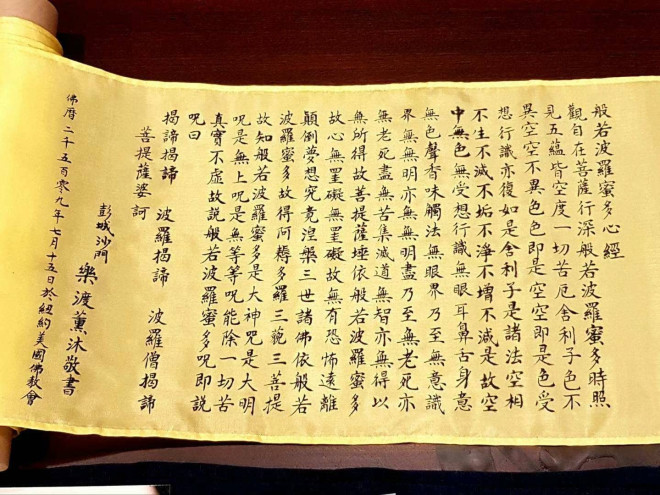 般若波羅蜜多心經
觀自在菩薩行深般若波羅蜜多時照
見五蘊皆空度一切苦厄舍利子色不
異空空不異色色即是空空即是色受
想行識亦復如是舍利子是諸法空相
不生不滅不垢不淨不增不減是故空
中無色無受想行識無眼耳鼻舌身意
無色聲香味觸法無眼界乃至無意識
界無無明亦無無明盡乃至無老死亦
無老死盡無苦集滅道無智亦無得以
無所得故菩提薩埵依般若波羅蜜多
故心無罣礙無罣礙故無有恐怖遠離
顛倒夢想究竟涅槃三世諸佛依般若
波羅蜜多故得阿耨多羅三藐三菩提
故知般若波羅蜜多是大神咒是大明
呪是無上呪是無等等呪能除一切苦
真實不虛故說般若波羅蜜多呪即說
呪曰
揭諦揭諦 波羅揭諦 波羅僧揭諦
菩提薩婆訶
彭城沙門 樂渡薰沐敬書
佛曆二千五百零九年七月十五日於紐約美國佛教會